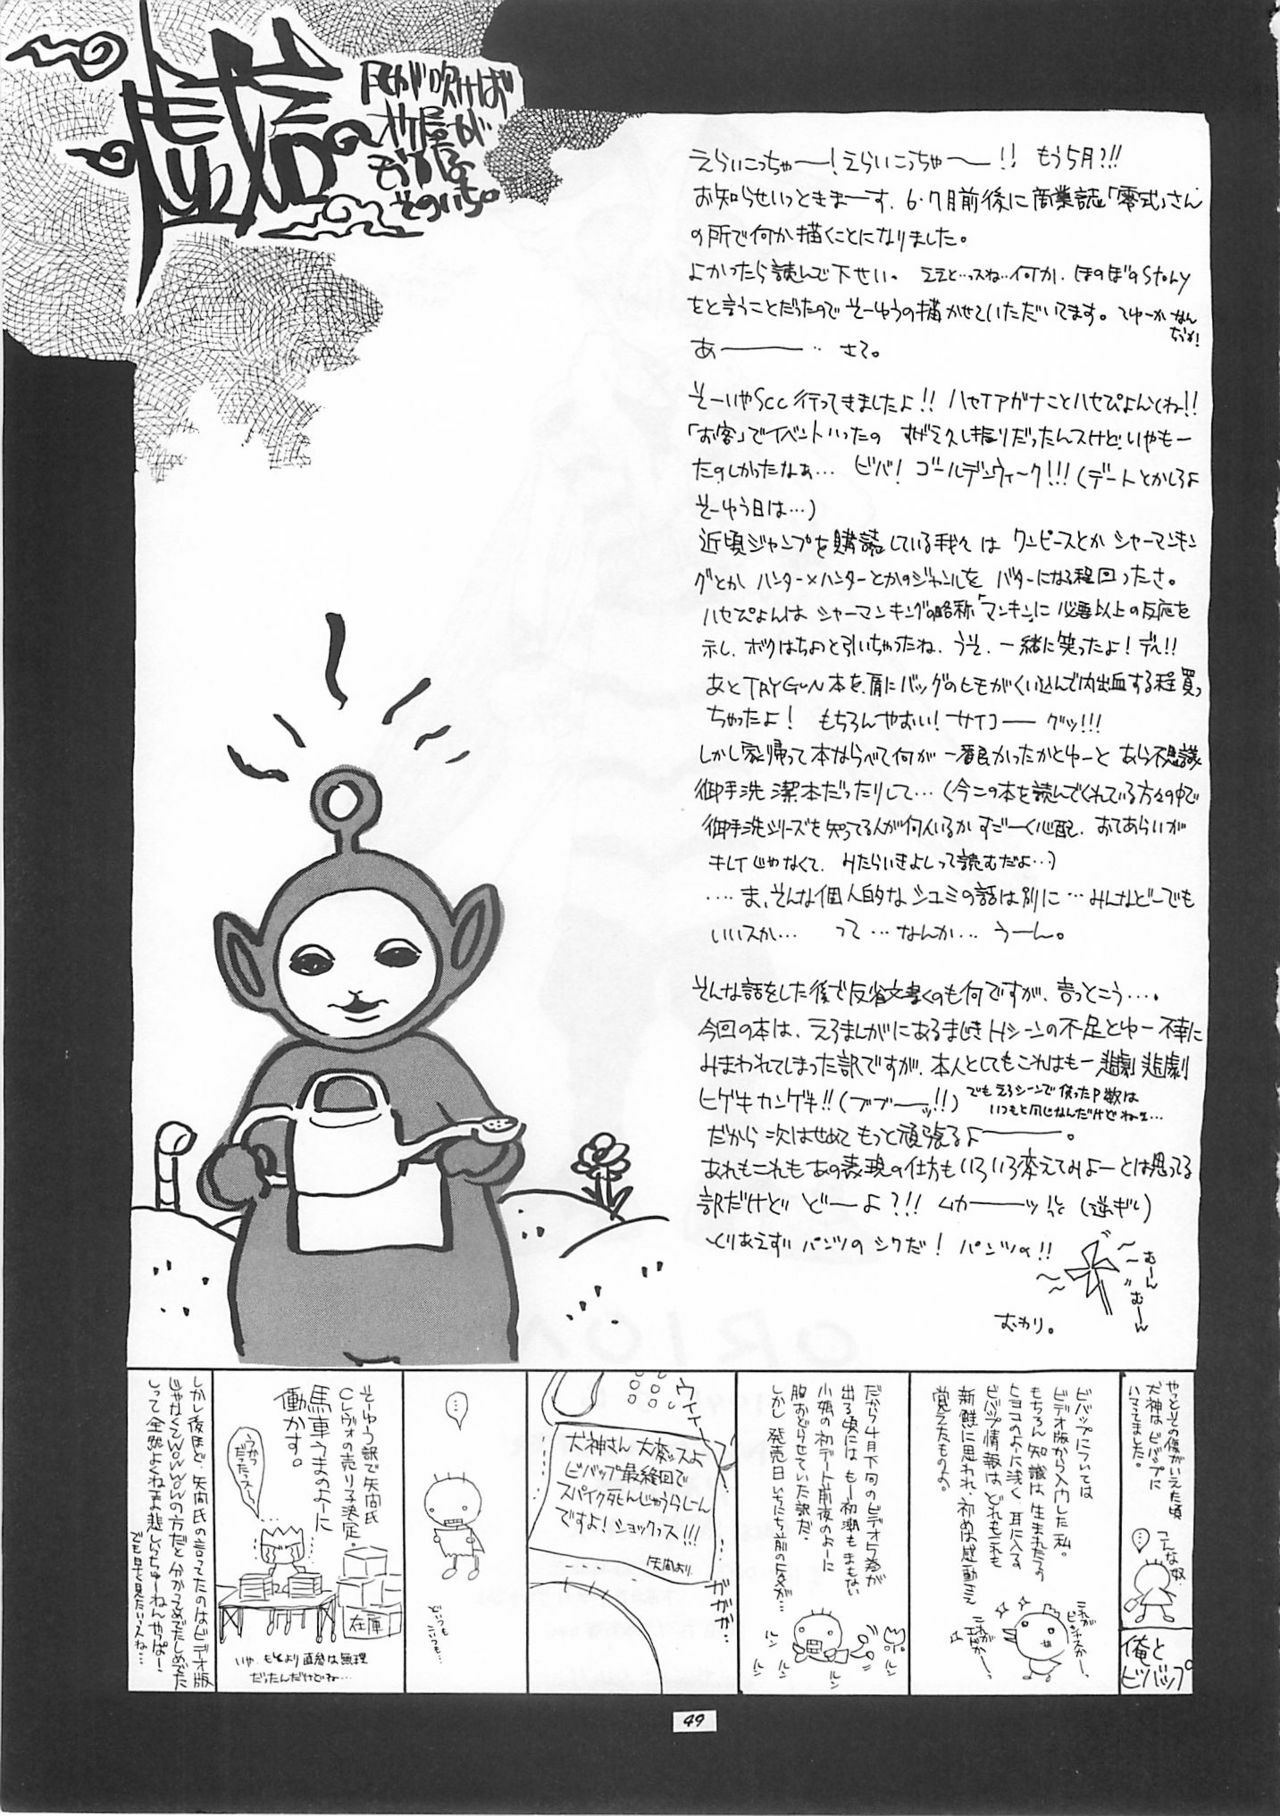 戯言の
風が吹けば
オケ屋が
もうかる
そのいち。
えらいこっちゃー!えらいこっちゃー!! もう5月?!!
お知らせいっときまーす、6・7月前後に商業誌「零式」さん
の所で何か描くことになりました。
よかったら読んで下せい。 ええと…っスね…何か、ほのぼのstory
をと言うことだったのでそーゆうの描かせていただいてます。てゆーかなん
だよ!
あーーー… さて。
そーいやScc行ってきましたよ!! ハセTアガナことハセぴょんとね!!
「お客」でイベントいったの すげェ久し振りだったんスけど、いやもー
たのしかったなぁ… ビバ! ゴールデンウィーク!!!(デートとかしろよ
そーゆう日は…)
近頃ジャンプを購読している我々は ワンピースとか シャーマンキン
グとか ハンター×ハンターとかのジャンルを バターになる程回ったさ。
ハセぴょんは シャーマンキングの略称「マンキン」に必要以上の反応を
示し、ボクはちょっと引いちゃったね、うそ、一緒に笑ったよ!デヘ!!
あとTRYGUN本を、肩にバッグのヒモがくい込んで内出血する程買っ
ちゃったよ! もちろんやおい! サイコー グッ!!!
しかし家帰って本ならべて何が一番良かったかとゆーと あら不思議
御手洗潔本だったりして…(今この本を読んでくれている方々の中で
御手洗シリーズを知ってる人が何人いるか すごーく心配、おてあらいが
キレイじゃなくて、みたらいきよしって読むだよ…)
‥‥ま、そんな個人的なシュミの話は別に…みんなどーでも
いいスか… って…なんか… うーん。
そんな話をした後で反省文書くのも何ですが、言っとこう…。
今回の本は、えろまんがにあるまじきHシーンの不足とゆー不幸に
みまわれてしまった訳ですが、本人としてもこれはもー悲劇悲劇
ヒゲキカンゲキ!!(ブブーッ!!)でもえろシーンで使ったP数は
いつもと同じなんだけどねェ…
だから次はせめてもっと頑張るよーーー。
あれもこれもあの表現の仕方もいろいろ変えてみよーとは思ってる
訳だけど どーよ?!! ムカーーッ (逆ギレ)
とりあえず パンツのシワだ! パンツの!!
むーん
むーん
むわり。
俺と
ビバップ
やっとその傷がいえた頃
犬神はビバップに
ハマってました。
こんな奴…
…
ビバップについては
ビデオ版から入門した私。
もちろん知識は生まれたての
ヒヨコのように浅く耳に入る
ビバップ情報は、どれもこれも
新鮮に思われ、初めは感動さえ
覚えたものよ。
これが
ビバップなのかー、
これが
だから4月下旬のビデオ5巻が
出る頃にはもー初潮もまもない
小娘の初デート前夜のように
胸おどらせていた訳だ。
しかし発売日いちにち前の夜が…
ルン
ルン
ルン
ルン
ウィー
犬神さん大変ッスよ
ビバップ最終回で
スパイク死んじゃうらしーん
ですよ!ショックっス!!!
矢向より
ガガガガ…
…
どいつも
こいつも…
そーゆう訳で矢向氏
Cレヴォの売り子決定。
馬車うまのように
働かす。
うかつ
だったス…
在庫
いや、もとより直参は無理
だったんだけどね…
しかし後ほど、矢向氏の言ってたのはビデオ版
じゃなくてWOWOWの方だと分かってめでたしめでた
しって全然よくねェよ悲しいちゅーねんやっぱー
でも早く見たいっスね…
49